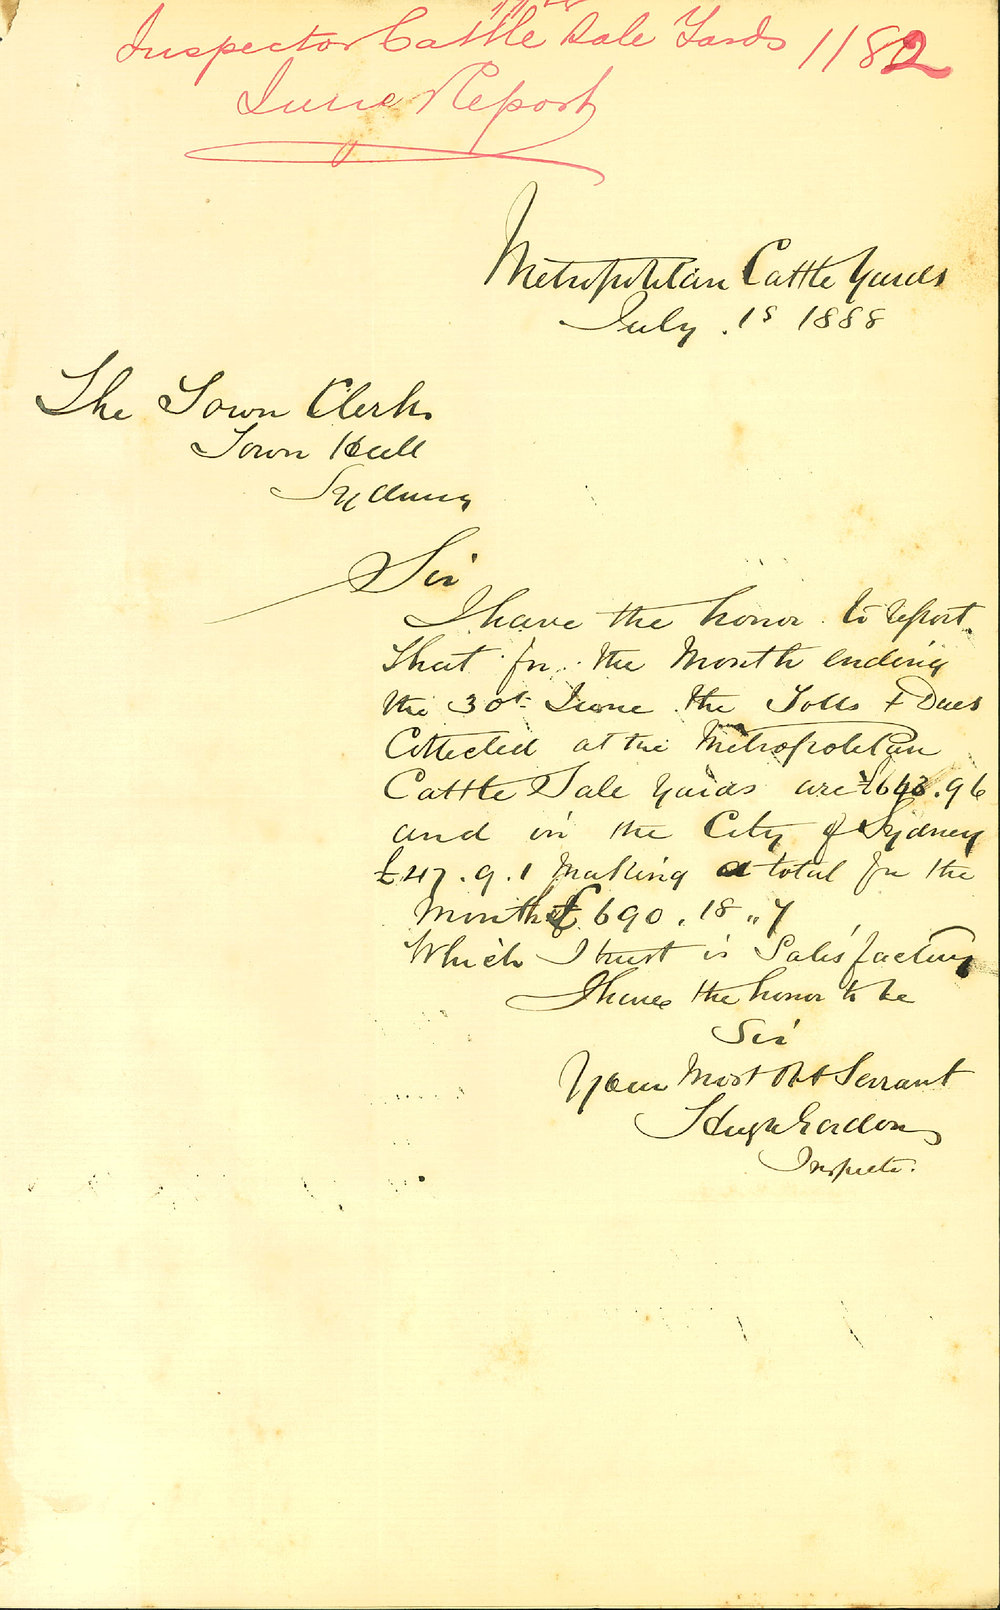 Inspector Cattle Sale Yards 1182
June Report
Metropolitan Cattle Yards
July 1s 1888
The Town Clerk
Town Hall
Sydney
Sir
I have the honor to report
that for the Month ending
the 30t June the Tolls & Dues
Collected at the Metropolitan
Cattle Sale Yards are £643.9 6
and in the City of Sydney
£47.9.1 Making a total for the
Month of £690.18"7
Which I trust is Satisfactory
I have the honor to be
Sir
Your Most Obt Servant
Hugh Gordon
Inspector